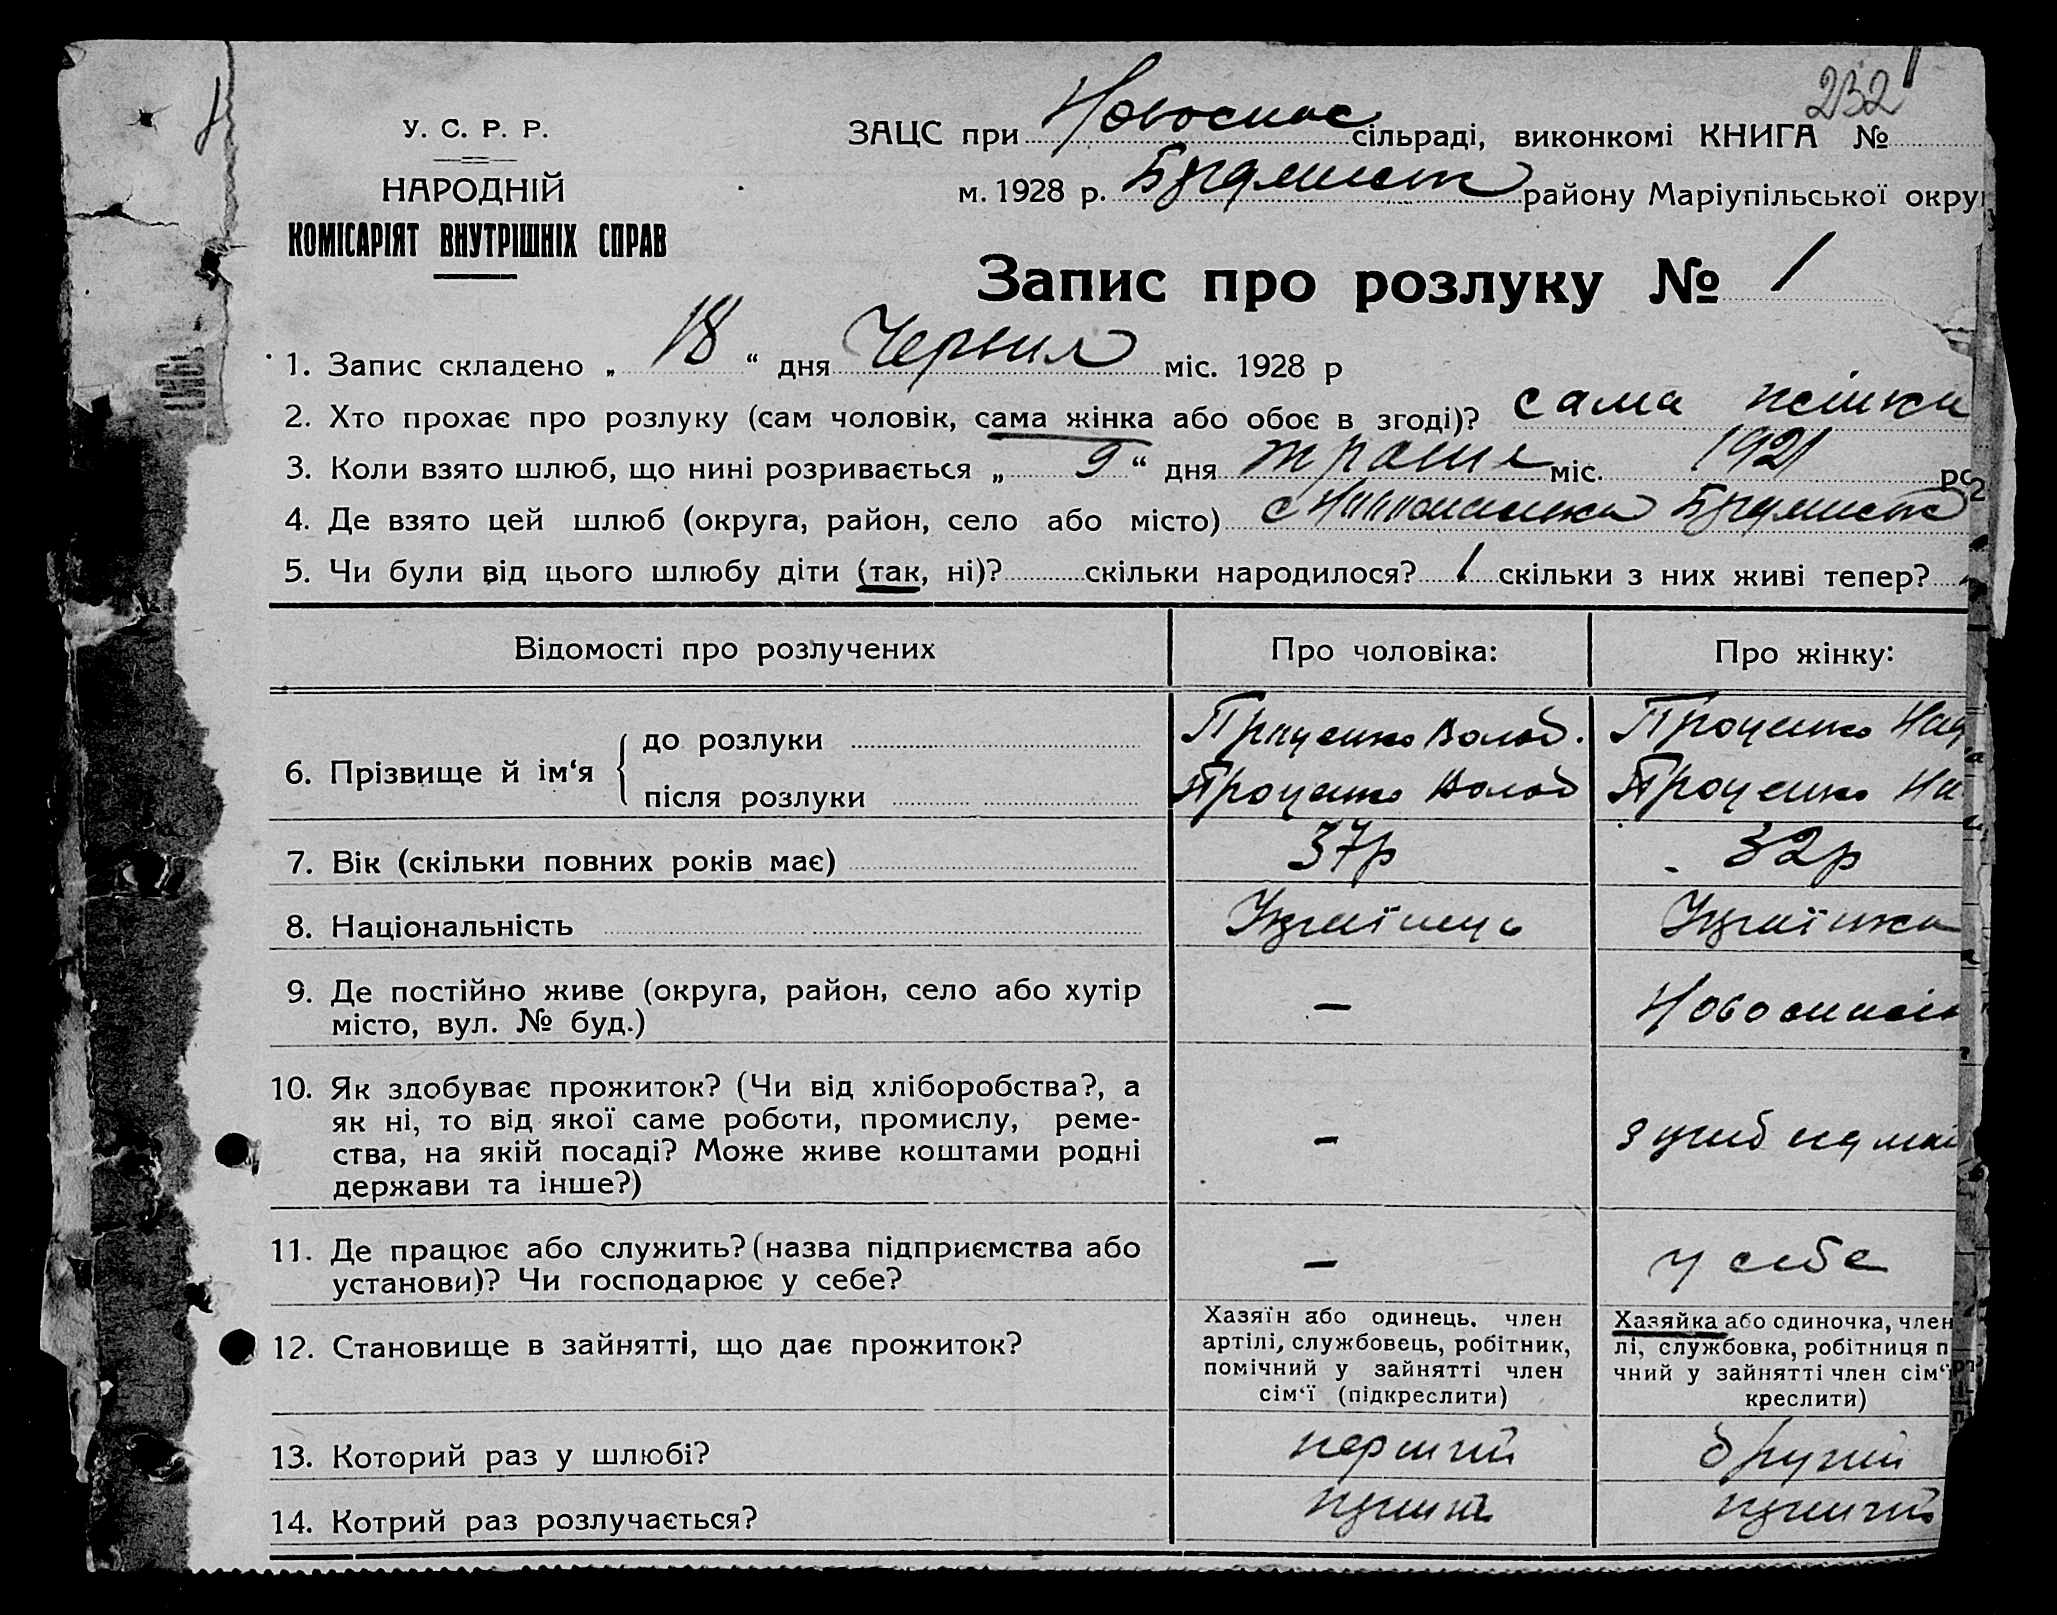 232
У. С. Р. Р.
ЗАЦС при Новоспас сільраді, виконкомі КНИГА №
НАРОДНІЙ
м. 1928 р. району Маріупільської окру
КОМІСАРІЯТ ВНУТРІШНІХ СПРАВ
Запис про розлуку № 1
1. Запис складено „ 18 “ дня Червня міс. 1928 р
2. Хто прохає про розлуку (сам чоловік, сама жінка або обоє в згоді)? сама жінка
3. Коли взято шлюб, що нині розривається „ 9 “ дня травня міс. 1921 рс
4. Де взято цей шлюб (округа, район, село або місто)
5. Чи були від цього шлюбу діти (так, ні)? скільки народилося? 1 скільки з них живі тепер?
Відомості про розлучених Про чоловіка: Про жінку:
6. Прізвище й ім‘я
до розлуки Проценко Волод. Проценко
після розлуки Проценко Волод Проценко
7. Вік (скільки повних років має) 37р 32р
8. Національність Українець Українка
9. Де постійно живе (округа, район, село або хутір
місто, вул. № буд.) —
10. Як здобуває прожиток? (Чи від хліборобства?, а
як ні, то від якої саме роботи, промислу, реме-
ства, на якій посаді? Може живе коштами родні
держави та інше?) —
11. Де працює або служить? (назва підприємства або
установи)? Чи господарює у себе? — у себе
12. Становище в зайнятті, що дає прожиток?
Хазяїн або одинець. член
артілі, службовець, робітник,
помічний у зайнятті член
сім‘ї (підкреслити)
Хазяйка або одиночка, член
лі, службовка, робітниця п
чний у зайнятті член сім‘ї
креслити)
13. Которий раз у шлюбі? перший другий
14. Котрий раз розлучається? перший перший